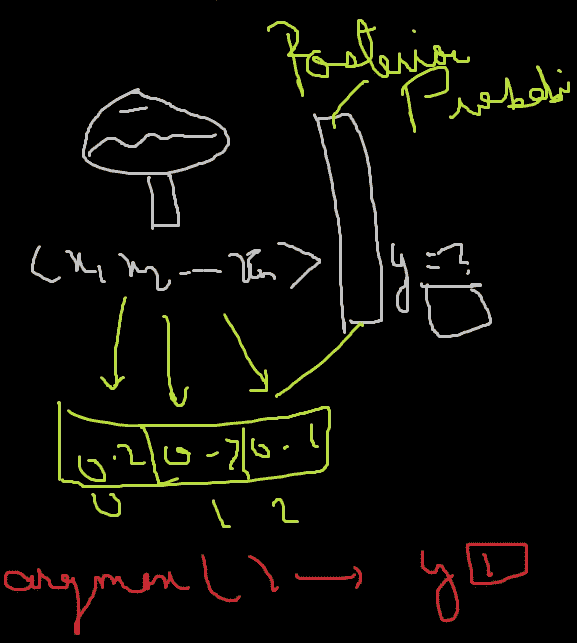 Posterior
Probabi
< x₁ x₂ --- xₙ > y = ?
0.2 0.7 0.1
0 1 2
argmax ( ) → y 1